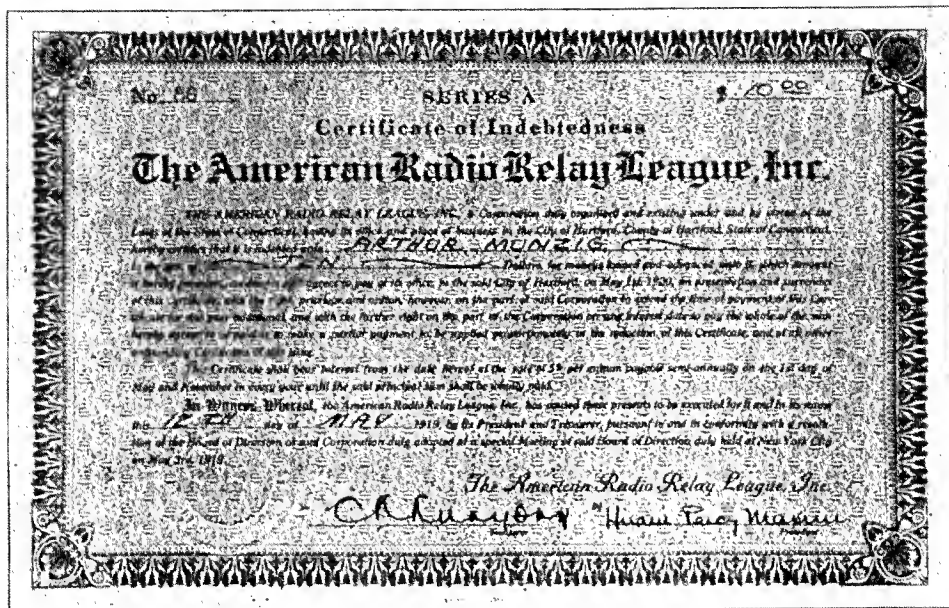 No 88 SERIES A $ 10 00
Certificate of Indebtedness
The American Radio Relay League, Inc.
THE AMERICAN RADIO RELAY LEAGUE, INC., a Corporation duly organized and existing under and by virtue of the
Laws of the State of Connecticut, having its office and place of business in the City of Hartford, County of Hartford, State of Connecticut,
hereby certifies that it is indebted unto ARTHUR MUNZIG
TEN Dollars, for moneys loaned and advanced unto it, which amount
agrees to pay at its office, in the said City of Hartford, on May 1st, 1920, on presentation and surrender
of this Certificate, with the right, privilege and option, however, on the part of said Corporation to extend the time of payment of this
one year additional, and with the further right on the part of the Corporation on any interest date to pay the whole of the sum
to make a partial payment to be applied proportionately in the reduction of this Certificate, and of all other
outstanding Certificates of this issue.
This Certificate shall bear interest from the date hereof at the rate of 5% per annum payable semi-annually on the 1st day of
May and November in every year until the said principal sum shall be wholly paid.
In Witness Whereof, the American Radio Relay League, Inc., has caused these presents to be executed for it and in its name
this 12 TH day of MAY 1919, by its President and Treasurer, pursuant to and in conformity with a resolu-
tion of the Board of Direction of said Corporation duly adopted at a special Meeting of said Board of Direction duly held at New York City
on May 3rd, 1919.
The American Radio Relay League, Inc.
By Hiram Percy Maxim
Treasurer President